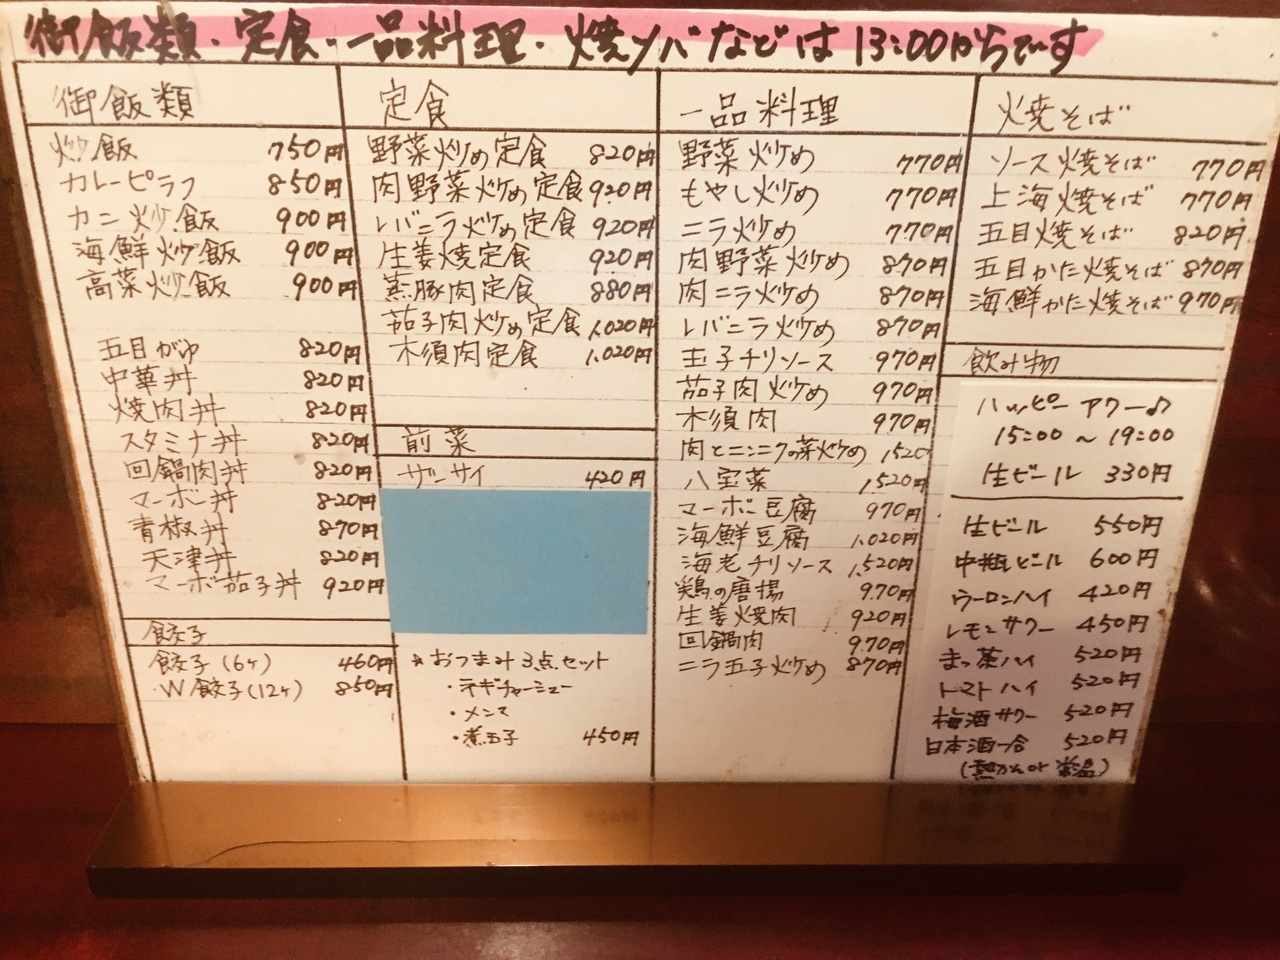 御飯類・定食・一品料理・焼ソバなどは13:00からです
御飯類
炒飯 750円
カレーピラフ 850円
カニ炒飯 900円
海鮮炒飯 900円
高菜炒飯 900円
五目がゆ 820円
中華丼 820円
焼肉丼 820円
スタミナ丼 820円
回鍋肉丼 820円
マーボー丼 820円
青椒丼 870円
天津丼 820円
マーボ茄子丼 920円
餃子
餃子(6ヶ) 460円
W餃子(12ヶ) 850円
定食
野菜炒め定食 820円
肉野菜炒め定食 920円
レバニラ炒め定食 920円
生姜焼定食 920円
蒸豚肉定食 880円
茄子肉炒め定食 1,020円
木須肉定食 1,020円
前菜
ザーサイ 420円
*おつまみ3点セット
・ネギチャーシュー
・メンマ
・煮玉子 450円
一品料理
野菜炒め 770円
もやし炒め 770円
ニラ炒め 770円
肉野菜炒め 870円
肉ニラ炒め 870円
レバニラ炒め 870円
玉子チリソース 970円
茄子肉炒め 970円
木須肉 970円
肉とニンニクの菜炒め 1,520
八宝菜 1,520円
マーボー豆腐 970円
海鮮豆腐 1,020円
海老チリソース 1,520円
鶏の唐揚 970円
生姜焼肉 920円
回鍋肉 970円
ニラ玉子炒め 870円
焼そば
ソース焼そば 770円
上海焼そば 770円
五目焼そば 820円
五目かた焼そば 870円
海鮮かた焼そば 970円
飲み物
ハッピーアワー♪
15:00〜19:00
生ビール 330円
生ビール 550円
中瓶ビール 600円
ウーロンハイ 420円
レモンサワー 450円
まっ茶ハイ 520円
トマトハイ 520円
梅酒サワー 520円
日本酒一合 520円
(熱かんor常温)